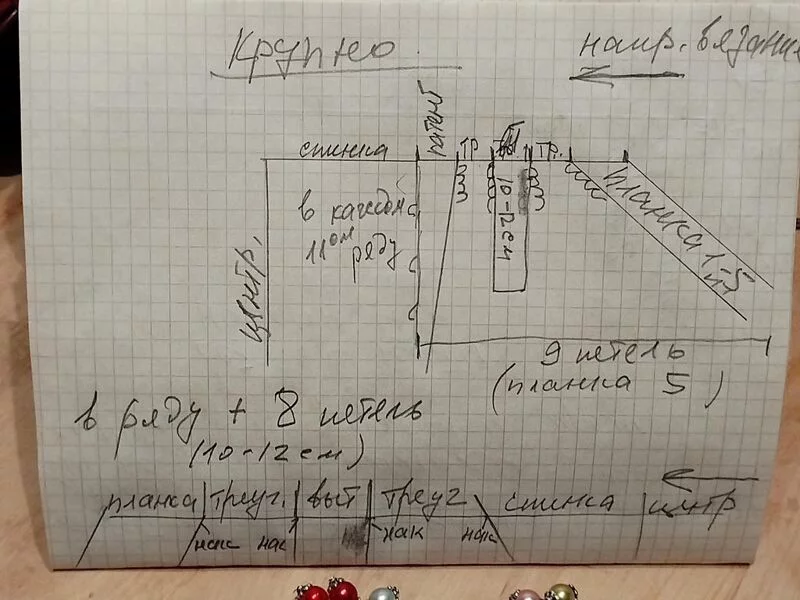 Крупно
напр. вязания
спинка
патент
тр
тр.
в каждом
11ом ряду
10-12 см
планка 1-5
центр.
9 петель
(планка 5)
в ряду + 8 петель
(10-12 см)
планка треуг. выт треуг спинка центр
нак нак нак нак